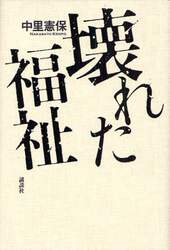 中里憲保
NAKASATO・KENPO
壊れた
福祉
講談社